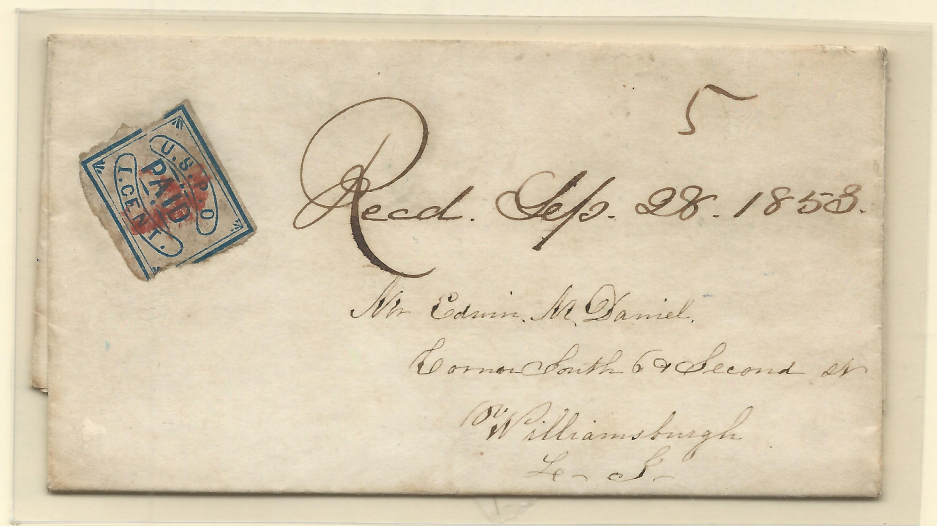 5
U.S.P.O
PAID
1.CENT.
Recd. Sep. 28. 1853.
Mr Edwin. M. Daniel.
Corner South 6 & Second st
Williamsburgh
L - I -